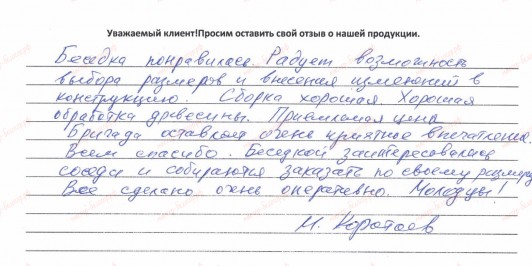 Уважаемый клиент!Просим оставить свой отзыв о нашей продукции.
Беседка понравилась. Радует возможность
выбора размеров и внесения изменений в
конструкцию. Сборка хорошая. Хорошая
обработка древесины. Приемлемая цена
Бригада оставила очень приятное впечатление.
Всем спасибо. Беседкой заинтересовались
соседи и собираются заказать по своему размеру
Все сделано очень оперативно. Молодцы!
М. Коротаев